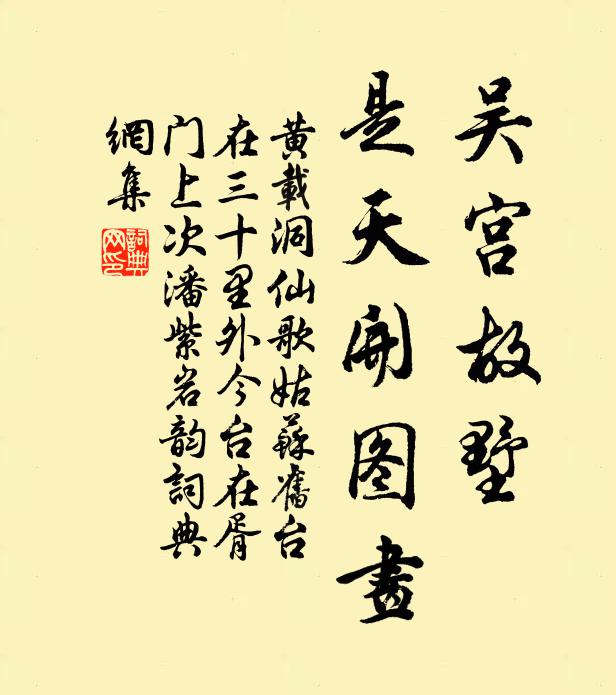 吴宫故墅
是天开图畫
黄載洞仙歌姑蘇舊台
在三十里外今台在胥
门上次潘紫岩韵詞典
網集
詞典
网印